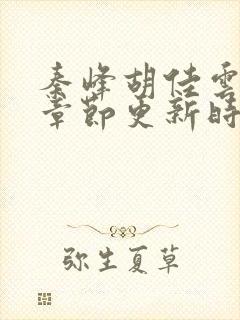 秦峰胡佳雲
章節更新時
弥生夏草